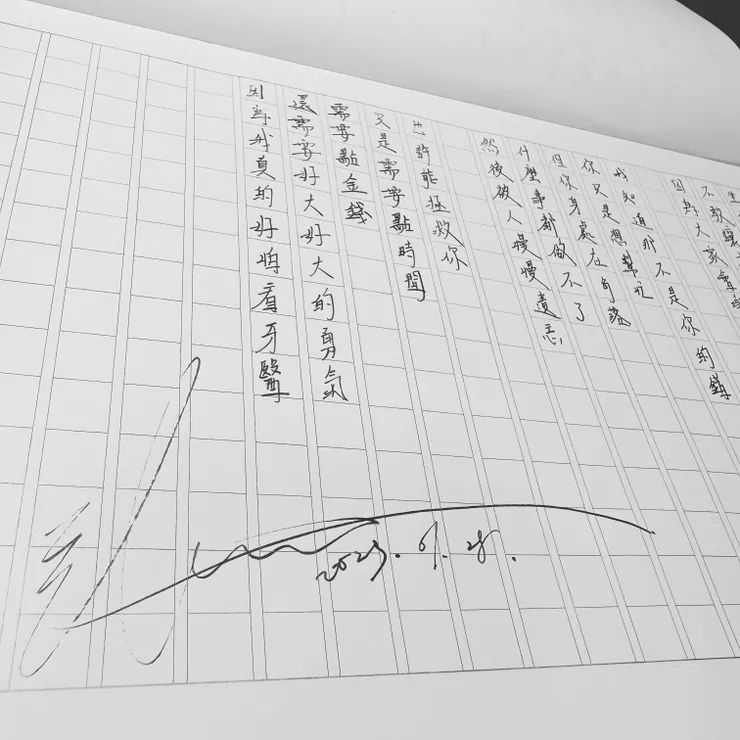 生
不敢
因為大家會
我知道那不是你的錯
你只是想幫忙
但你身處在角落
什麼事都做不了
然後被人慢慢遺忘
也許能拯救你
又是需要點時間
需要點金錢
還需要好大好大的勇氣
因為我真的好怕看牙醫